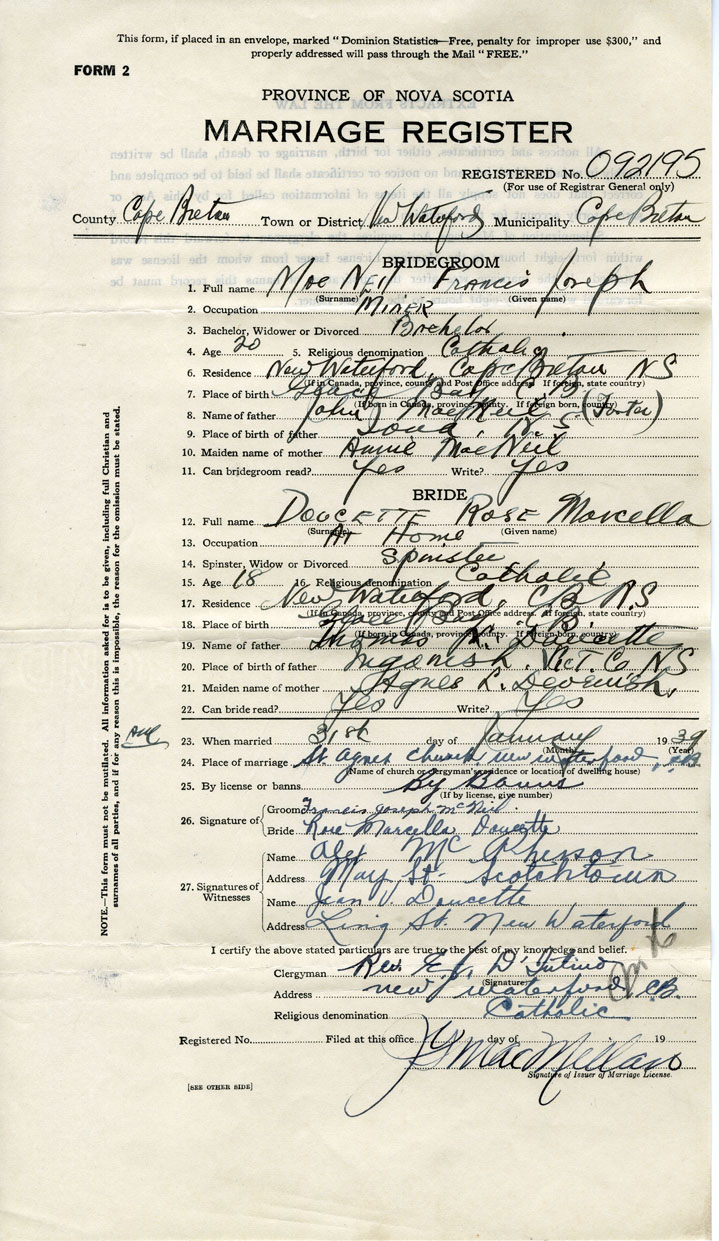 This form, if placed in an envelope, marked "Dominion Statistics—Free, penalty for improper use $300," and
properly addressed will pass through the Mail "FREE."
FORM 2
PROVINCE OF NOVA SCOTIA
MARRIAGE REGISTER
REGISTERED No. 092195
(For use of Registrar General only)
County Cape Breton Town or District New Waterford Municipality Cape Breton
BRIDEGROOM
1. Full name Mac Neil Francis Joseph
(Surname) (Given name)
2. Occupation Miner
3. Bachelor, Widower or Divorced Bachelor
4. Age 20 5. Religious denomination Catholic
6. Residence New Waterford, Cape Breton NS
(If in Canada, province, county and Post Office address If foreign, state country)
7. Place of birth Glace Bay C.B.
(If born in Canada, province, county. If foreign born, country)
8. Name of father John MacNeil (Foster)
9. Place of birth of father Iona, N.S
10. Maiden name of mother Annie MacNeil
11. Can bridegroom read? Yes Write? Yes
BRIDE
12. Full name Doucette Rose Marcella
(Surname) (Given name)
13. Occupation At Home
14. Spinster, Widow or Divorced Spinster
15. Age 18 16. Religious denomination Catholic
17. Residence New Waterford, C.B. N.S
(If in Canada, province, county and Post Office address. If foreign, state country)
18. Place of birth Glace Bay C.B.
(If born in Canada, province, county. If foreign born, country)
19. Name of father Thomas Doucette
20. Place of birth of father Ingonish. Vict. Co N.S
21. Maiden name of mother Agnes L. Devenish,
22. Can bride read? Yes Write? Yes
23. When married 31st day of January 1939
(Month) (Year)
24. Place of marriage St Agnes Church, New Waterford, C.B.
(Name of church or clergyman's residence or location of dwelling house)
25. By license or banns By Banns
(If by license, give number)
26. Signature of Groom Francis Joseph McNeil
Bride Rose Marcella Doucette
27. Signatures of Witnesses
Name Alex McPherson
Address Mary St. Scotchtown
Name Jean V. Doucette
Address Ling St. New Waterford
I certify the above stated particulars are true to the best of my knowledge and belief.
Clergyman Rev. E. D'Intino
(Signature)
Address New Waterford, C.B.
Religious denomination Catholic
Registered No. Filed at this office day of 19
MacMillan
Signature of Issuer of Marriage License
[SEE OTHER SIDE]
NOTE.—This form must not be mutilated. All information asked for is to be given, including full Christian and
surnames of all parties, and if for any reason this is impossible, the reason for the omission must be stated.